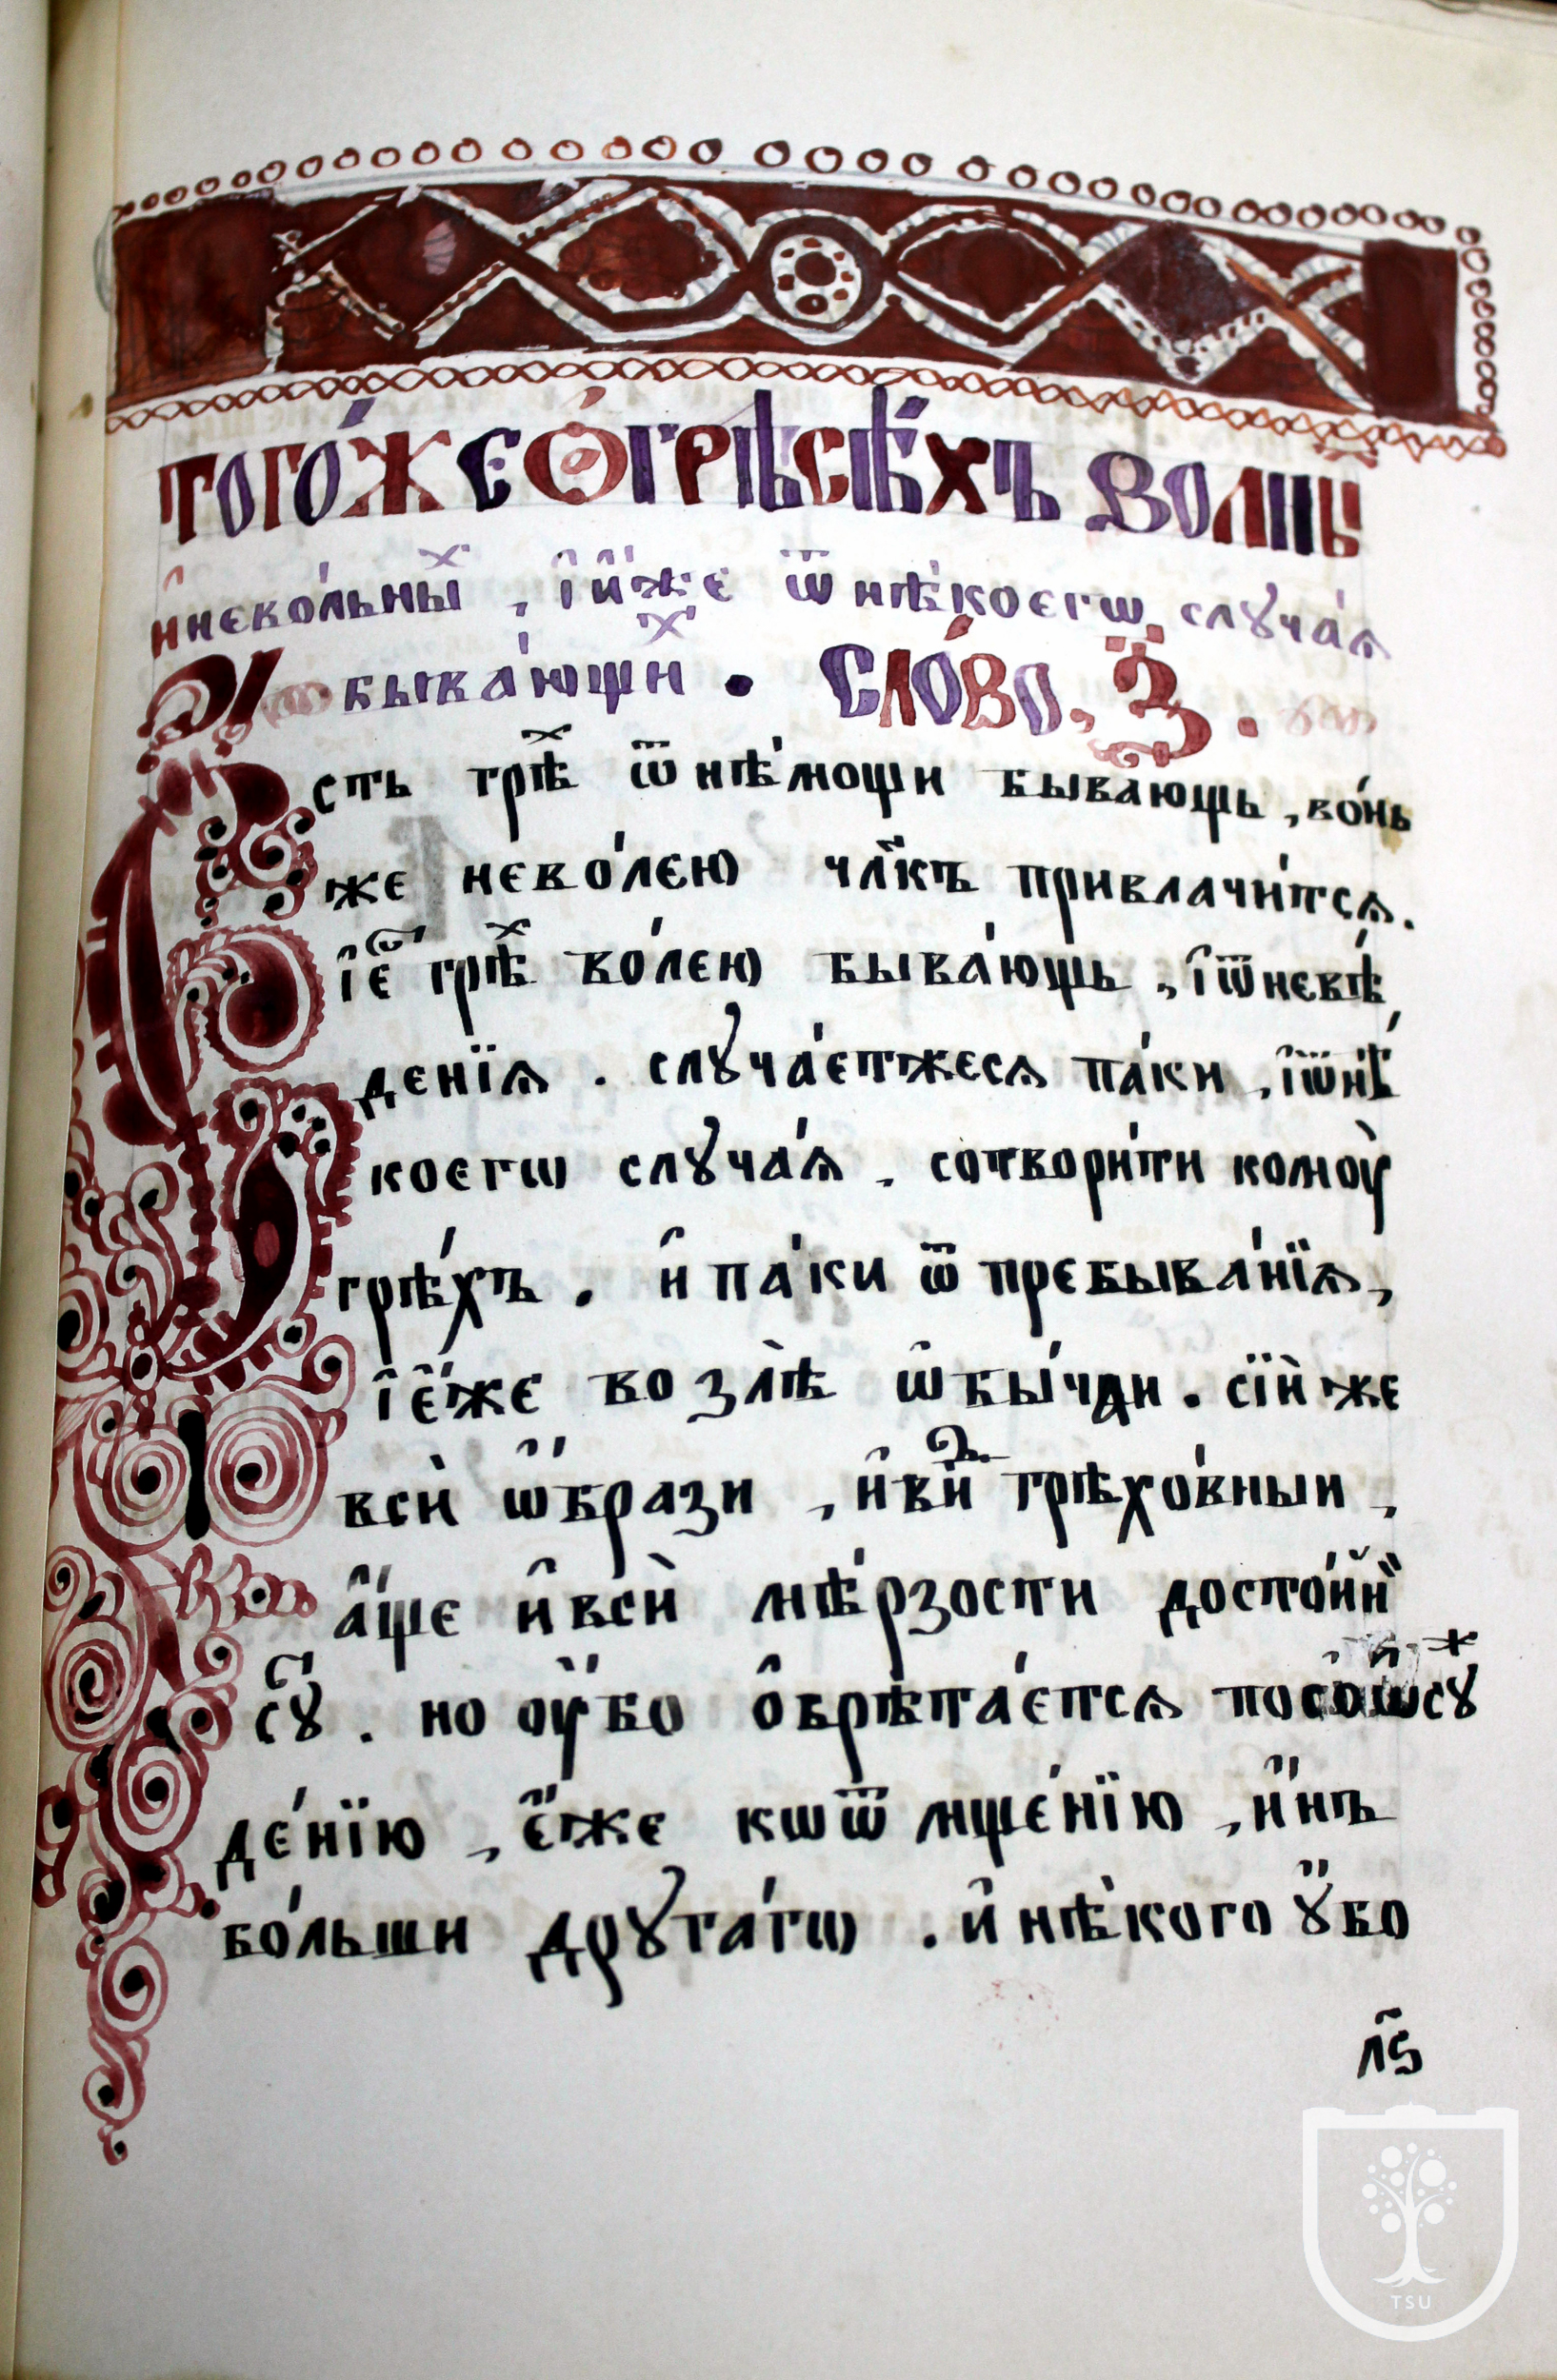 того́же ѻ҆ грѣсѣ́хъ волны
и҆ невольны́х , і҆ и҆́же ѿ нѣ́коегѡ слꙋча́ѧ
быва́ющих • сло́во , з҃ .
Есть грѣ́х ѿ нѣ́мощи быва́ющь , во́нь
же нево́лею чл҃къ привлачи́тсѧ .
і҆ є҆с грѣ́х во́лею быва́ющь , і҆ ѿ невѣ́
денїѧ . слꙋча́єтжесѧ па́ки , і҆ ѿ нѣ́
коегѡ слꙋча́ѧ . сотвори́ти комоу̀
грѣ́хъ . и҆ па́ки ѿ пребыва́нїѧ ,
і҆ є҆́же во злѣ̀ ѡ҆бы́чаи . сїѝ же
всѝ ѡ҆́брази , и҆ ви́д грѣхо́вныи ,
а҆́ще и҆ всѝ мѣ́рзости досто́йнѝ
сꙋ́т . но оу҆́бо ѻ҆брѣта́єтсѧ по ѡсꙋ
де́нїю , є҆́же к ѡ҆ѿмще́нїю , и҆́нъ
бо́льши дрꙋга́гѡ . и҆ нѣ́кого ꙋ҆́бо
л҃ѕ
TSU